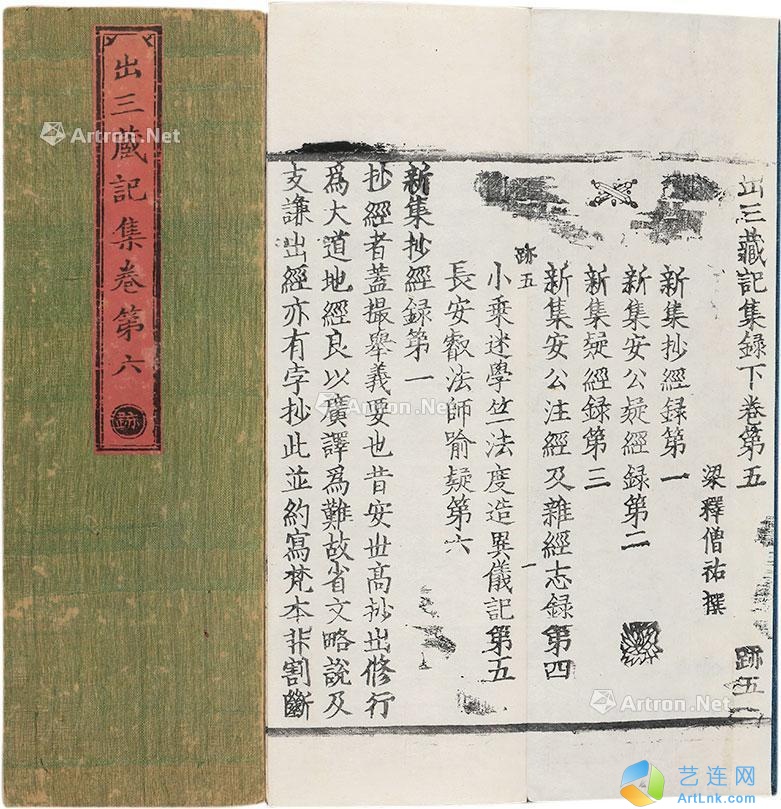 出三藏記集卷第六
跡
出三藏記集録下卷第五
跡五
梁釋僧祐撰
新集抄經録第一
新集安公疑經録第二
新集疑經録第三
新集安公注經及雜經志録第四
跡五
一
小乘迷學竺法度造異儀記第五
長安叡法師喻疑第六
新集抄經録第一
抄經者蓋撮舉義要也昔安世高抄出修行
爲大道地經良以廣譯爲難故省文略說及
支謙出經亦有孛抄此並約寫梵本非割斷
Artron.Net
Artron.Net
Artron.Net
Artron.Net
艺连网
ArtLnk.com